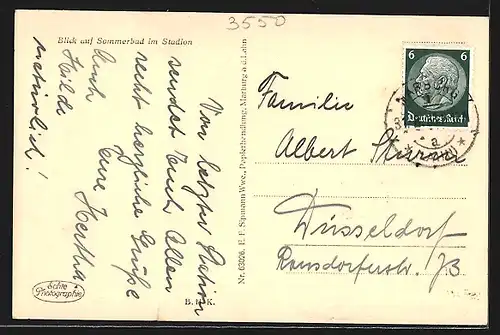 3550
Blick auf Sommerbad im Stadion
Von letzter Station
sendet Euch Allen
recht herzliche Grüße
Eure Hertha
Auch
Hilde
natürlich!
Echte
Photographie
B. K.
Nr. 63026. E. F. Sipmann Wwe., Papierhandlung, Marburg a. d. Lahn
6 6
Deutsches Reich
MARBURG
a
Familie
Albert
Düsseldorf